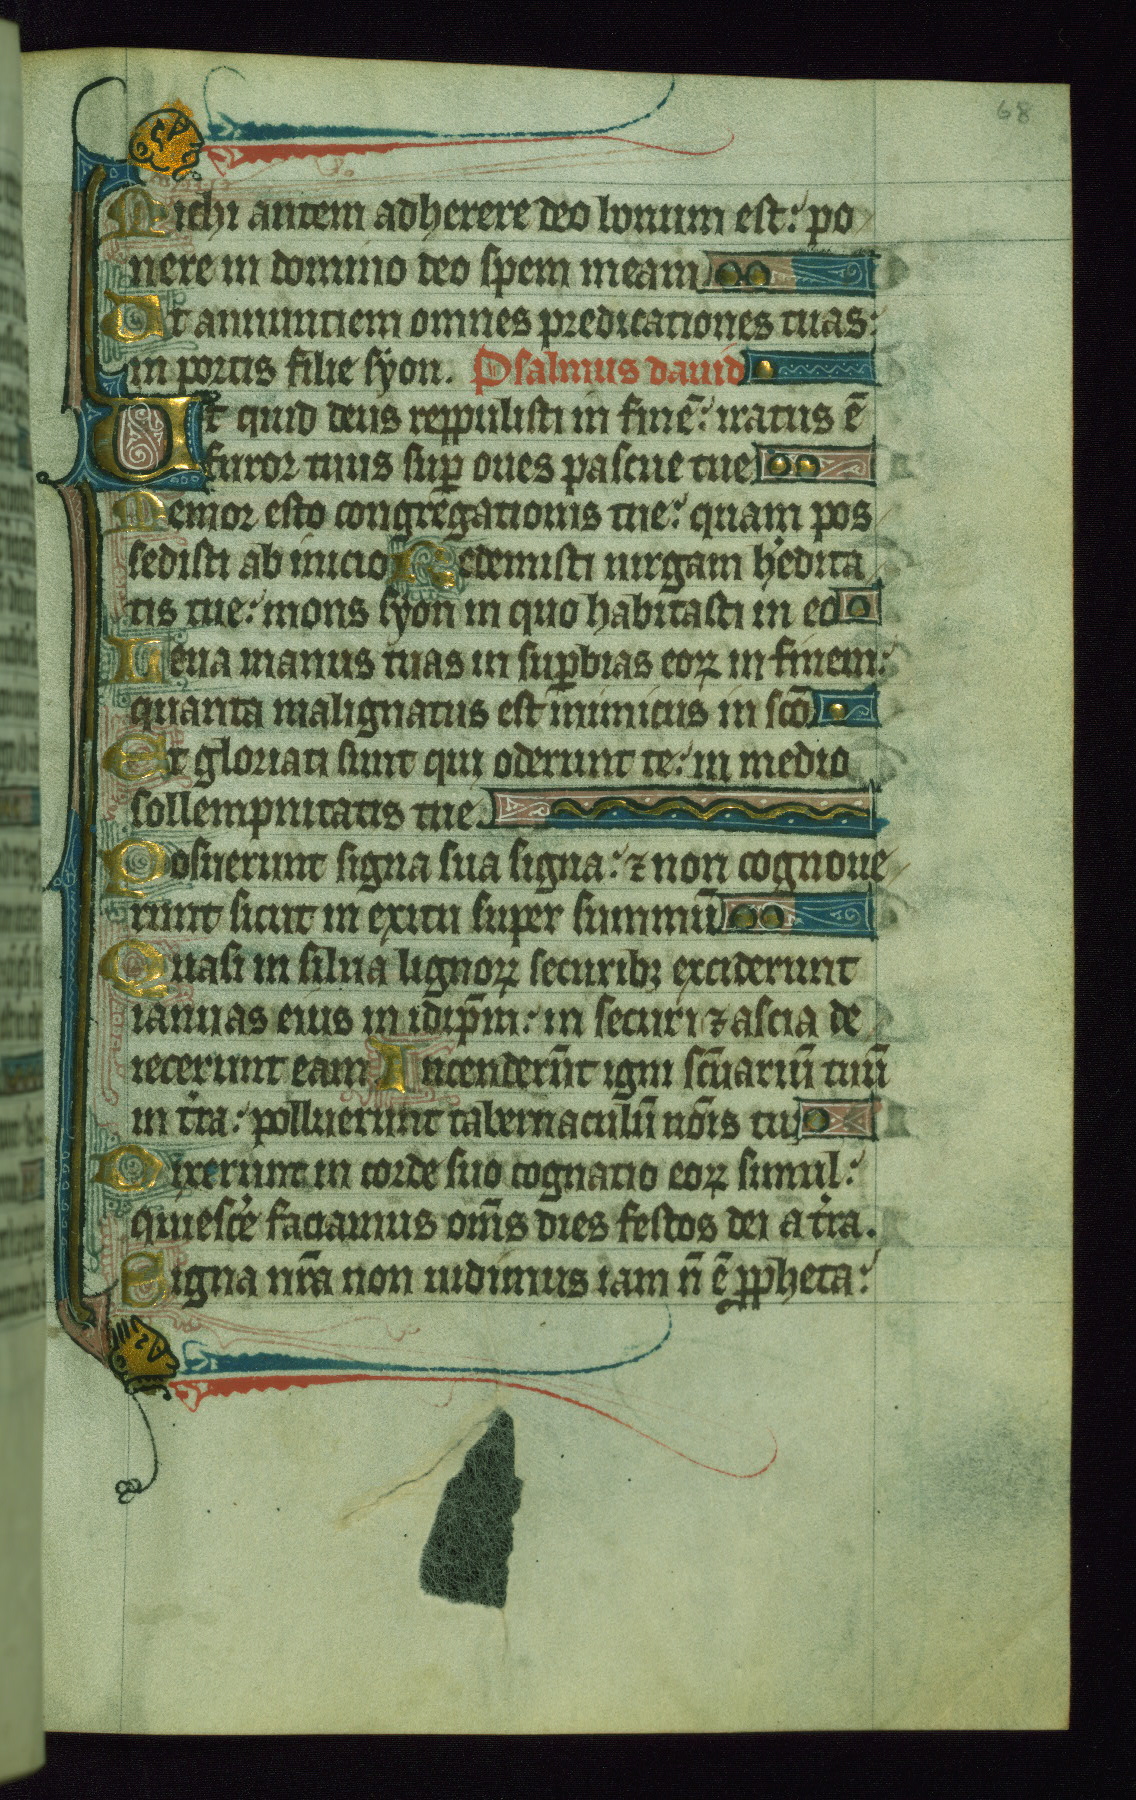 68
Michi autem adherere deo bonum est: po
nere in domino deo spem meam
Ut annunciem omnes predicationes tuas:
in portis filie syon. Psalmus dauid
Ut quid deus reppulisti in finē: iratus ē
furor tuus sup̄ oues pascue tue
Memor esto congregationis tue: quam pos
sedisti ab inicio Redemisti uirgam hedita
tis tue: mons syon in quo habitasti in eo
Leua manus tuas in sup̄bias eoꝝ in finem:
quanta malignatus est inimicus in scō
Et gloriati sunt qui oderunt te: in medio
sollempnitatis tue
Posuerunt signa sua signa: ⁊ non cognoue
runt sicut in exitu super summū
Quasi in silua lignoꝝ securibꝫ exciderunt
ianuas eius in idip̄m: in securi ⁊ ascia de
iecerunt eam Incenderūt igni scūariū tuū
in tra: polluerunt tabernaculū nōis tui
Dixerunt in corde suo cognatio eoꝝ simul:
quiesce faciamus om̄s dies festos dei a tra.
Signa nr̄a non uidimus iam n̄ ē ꝓpheta: